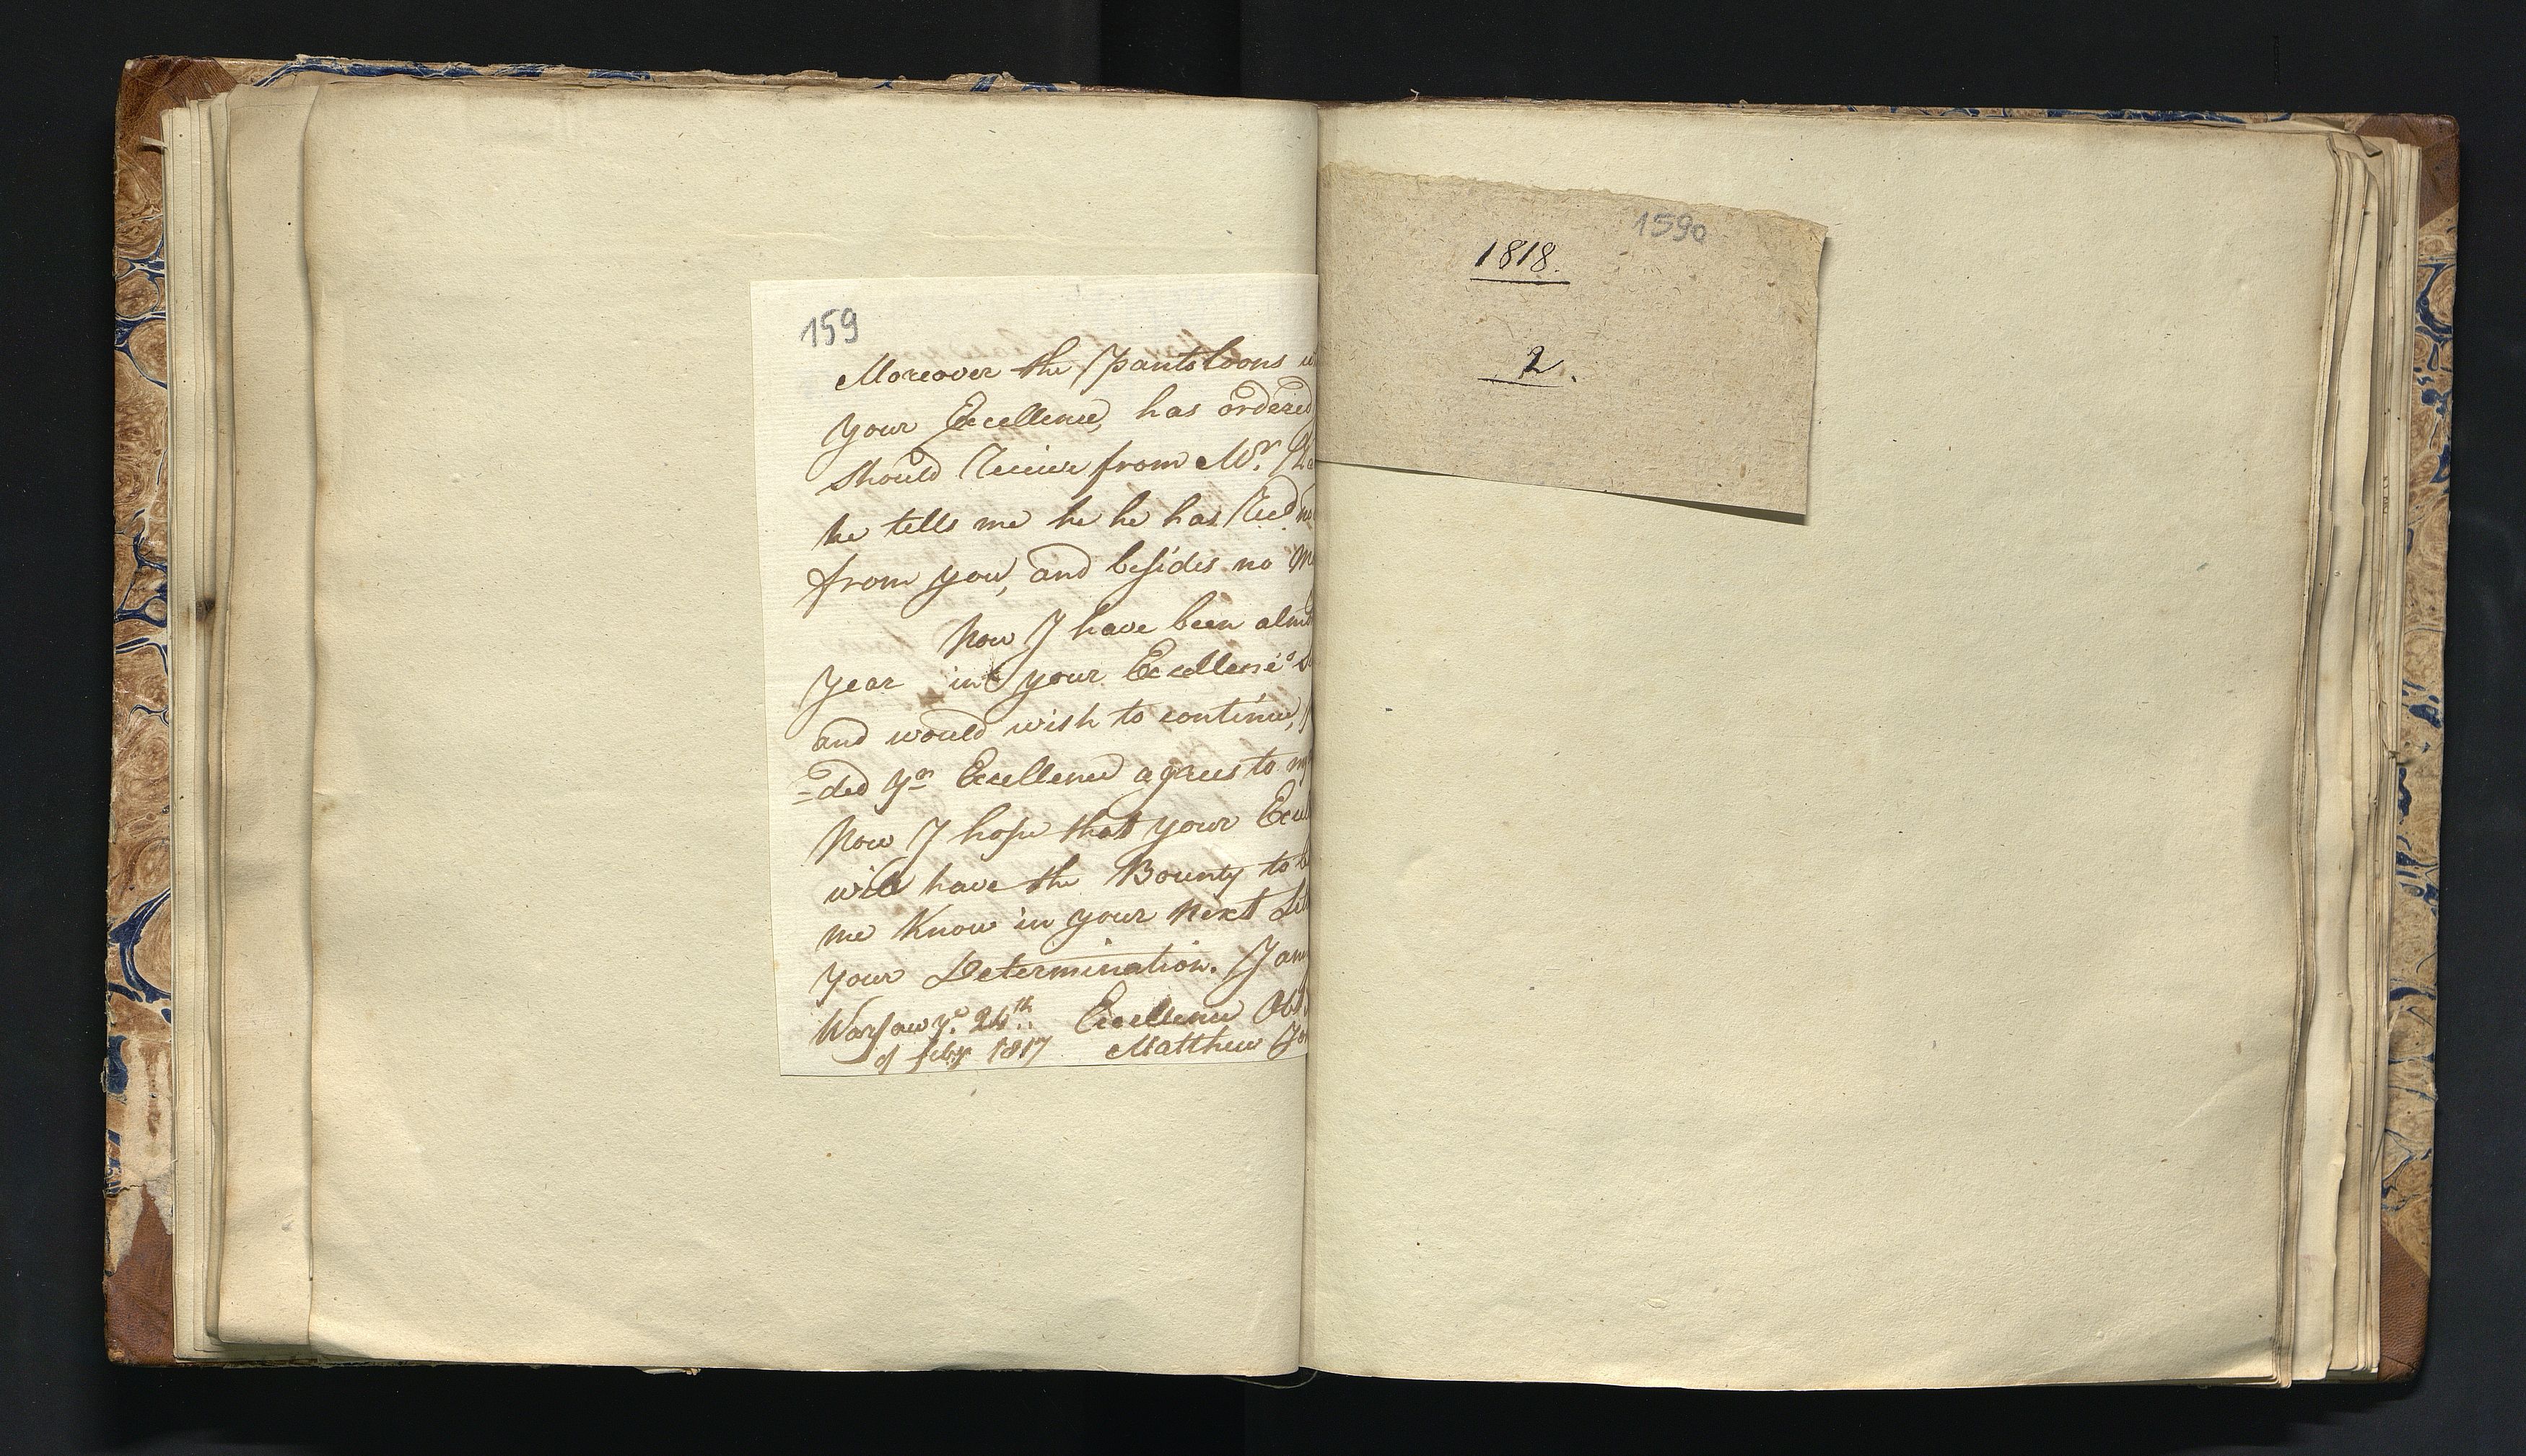 159
Moreover the Pantoloons
your Excellence, has ordered
should Receive from Mr.
he tells me he he has Recd. no
from you, and besides no
Now I have been almost
year in your Excellencÿs
and would wish to continue,
=ded yr. Excellence agrees to my
Now I hope that your Excell
will have the Bounty to
me Know in your next Let
your Determination. I am
Warsaw ye. 24th. Excellence Obt.
of feby 1817 Matthew
1590
1818.
2.